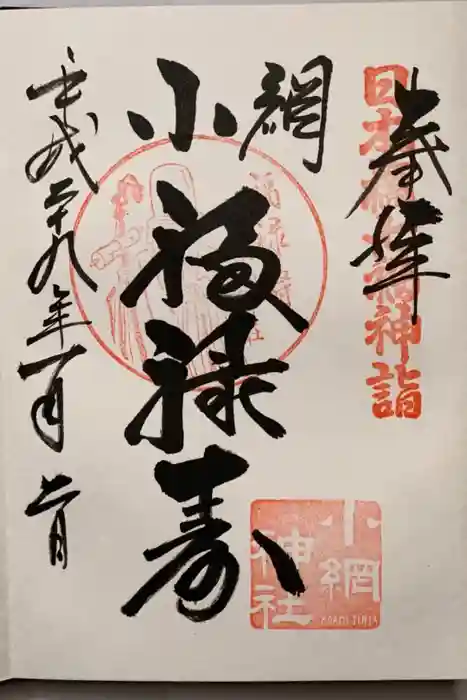 奉拝
日本橋七福神詣
小網
福禄寿
小網
神社
KOAMI JINJA
平成二十九年一月 日